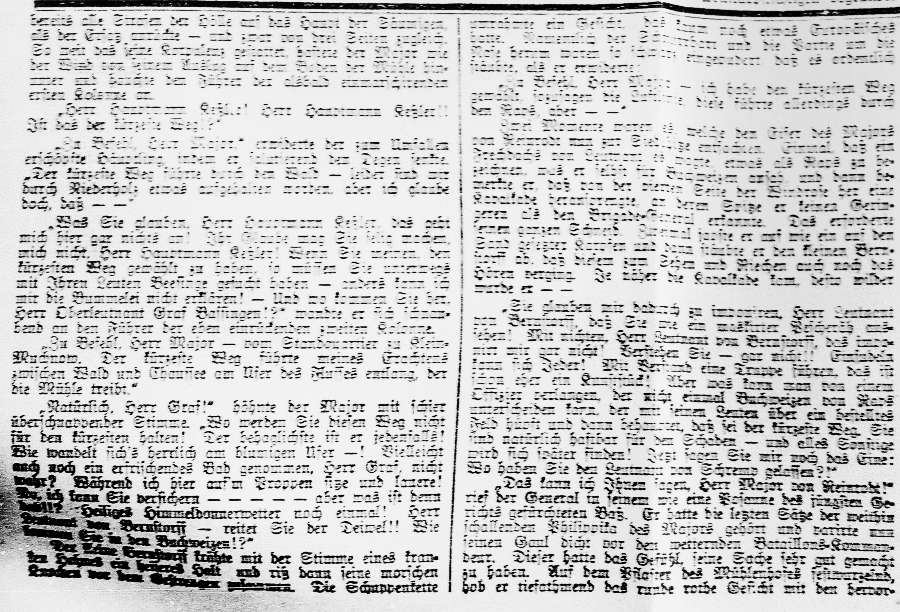 bereits alle Strafen der Hölle auf das Haupt der Säumigen,
als der Erfolg anrückte — und zwar von drei Seiten zugleich.
So weit das seine Korpulenz gestattet, hastete der Major wie
der Wind von seinem Auslug auf dem Boden der Mühle hin-
unter und den Führer der alsbald einmarschierenden
ersten Kolonne an.
„Herr Hauptmann Keßler! Herr Hauptmann Keßler!!
Ist das der kürzeste Weg!?"
„Zu Befehl, Herr Major," erwiderte der zum Umfallen
erschöpfte Häuptling, indem er salutierend den Degen senkte.
„Der kürzeste Weg führte durch den Wald — leider sind wir
durch Niederholz etwas aufgehalten worden, aber ich glaube
doch, daß — —"
„Was Sie glauben, Herr Hauptmann Keßler, das geht
mich hier gar nichts an! Ihr Glaube mag Sie selig machen,
mich nicht, Herr Hauptmann Keßler! Wenn Sie meinen, den
kürzesten Weg gewählt zu haben, so müssen Sie unterwegs
mit Ihren Leuten Beefinge gesucht haben — anders kann ich
mir die Bummelei nicht erklären! — Und wo kommen Sie her,
Herr Oberleutnant Graf Baffingen!?" wandte er sich schnau-
bend an den Führer der eben einrückenden zweiten Kolonne.
„Zu Befehl, Herr Major — vom Standquartier zu Klein-
Muchnow. Der kürzeste Weg führte meines Erachtens
zwischen Wald und Chaussee am Ufer des Flusses entlang, der
die Mühle treibt."
„Natürlich, Herr Graf!" höhnte der Major mit schier
überschnappender Stimme. „Wo werden Sie diesen Weg nicht
für den kürzesten halten! Der behaglichste ist er jedenfalls!
Wie wandelt sich's herrlich am blumigen Ufer —! Vielleicht
auch noch ein erfrischendes Bad genommen, Herr Graf, nicht
wahr? Während ich hier auf'm Proppen sitze und lauere!
Na, ich kann Sie versichern — — — — — aber was ist denn
das!!? Heiliges Himmeldonnerwetter noch einmal! Herr
Leutnant von Bernstorff — reitet Sie der Deiwel!! Wie
kommen Sie in den Buchweizen!?"
Der kleine Bernstorff krähte mit der Stimme eines kran-
ken Hahnes ein heiseres Halt und riß dann seine morschen
Knochen vor dem Gestrengen zusammen. Die Schuppenkette
umrahmte ein Gesicht, das kaum noch etwas Europäisches
hatte. Namentlich der und die Partie um die
Nase herum waren so eingepudert, daß es ordentlich
stäubte, als er erwiderte:
„Zu Befehl, Herr Major — ich habe den kürzesten Weg
gewählt, diese führte allerdings durch
den Raps, aber — —"
Zwei Momente waren es, welche den Eifer des Majors
von Reinrodt nun zur Siedehitze entfachten. Einmal, daß ein
Frechdachs von Leutnant es wagte, etwas als Raps zu be-
zeichnen, was er selbst für Buchweizen ansah, und dann be-
merkte er, daß von der vierten Seite der Windrose her eine
Kavalkade heransprengte, an deren Spitze er keinen Gerin-
geren als den Brigade-General erkannte. Das erforderte
seinen ganzen Schneid. Zweimal japste er auf wie ein auf den
Sand gesetzter Karpfen und dann er den kleinen Bern-
storff ab, daß diesem zum Sehen und Riechen auch noch das
Hören verging. Je näher die Kavalkade kam, desto wilder
wurde er — —
„Sie glauben mir dadurch zu imponieren, Herr Leutnant
von Bernstorff, daß Sie wie ein maskierter aus-
sehen! Mit nichten, Herr Leutnant von Bernstorff, das impo-
niert mir gar nicht! Verstehen Sie — gar nicht!! Einsudeln
kann sich Jeder! Mit Verstand eine Truppe führen, das ist
schon eher ein Kunststück! Aber was kann man von einem
Offizier verlangen, der nicht einmal Buchweizen von Raps
unterscheiden kann, der mit seinen Leuten über ein bestelltes
Feld läuft und dann behauptet, daß sei der kürzeste Weg. Sie
sind natürlich haftbar für den Schaden — und alles Sonstige
wird sich später finden! Jetzt sagen Sie mir noch das Eine:
Wo haben Sie den Leutnant von Schremp gelassen?!"
„Das kann ich Ihnen sagen, Herr Major von Reinrodt!"
rief der General in seinem wie eine Posaune des jüngsten Ge-
richts gefürchteten Baß. Er hatte die letzten Sätze der weithin
schallenden Philippika des Majors gehört und parirte nun
seinen Gaul dicht vor dem wetternden Bataillons-Komman-
deur. Dieser hatte das Gefühl, seine Sache sehr gut gemacht
zu haben. Auf dem Pflaster des Mühlenhofes festwurzelnd,
hob er tiefathmend das runde rothe Gesicht mit den hervor-